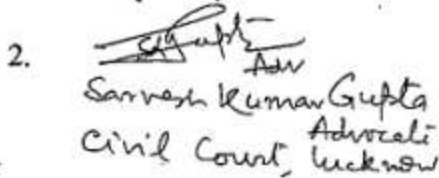 2. SKGupta
Adv
Sarvesh Kumar Gupta
Advocate
Civil Court, Lucknow